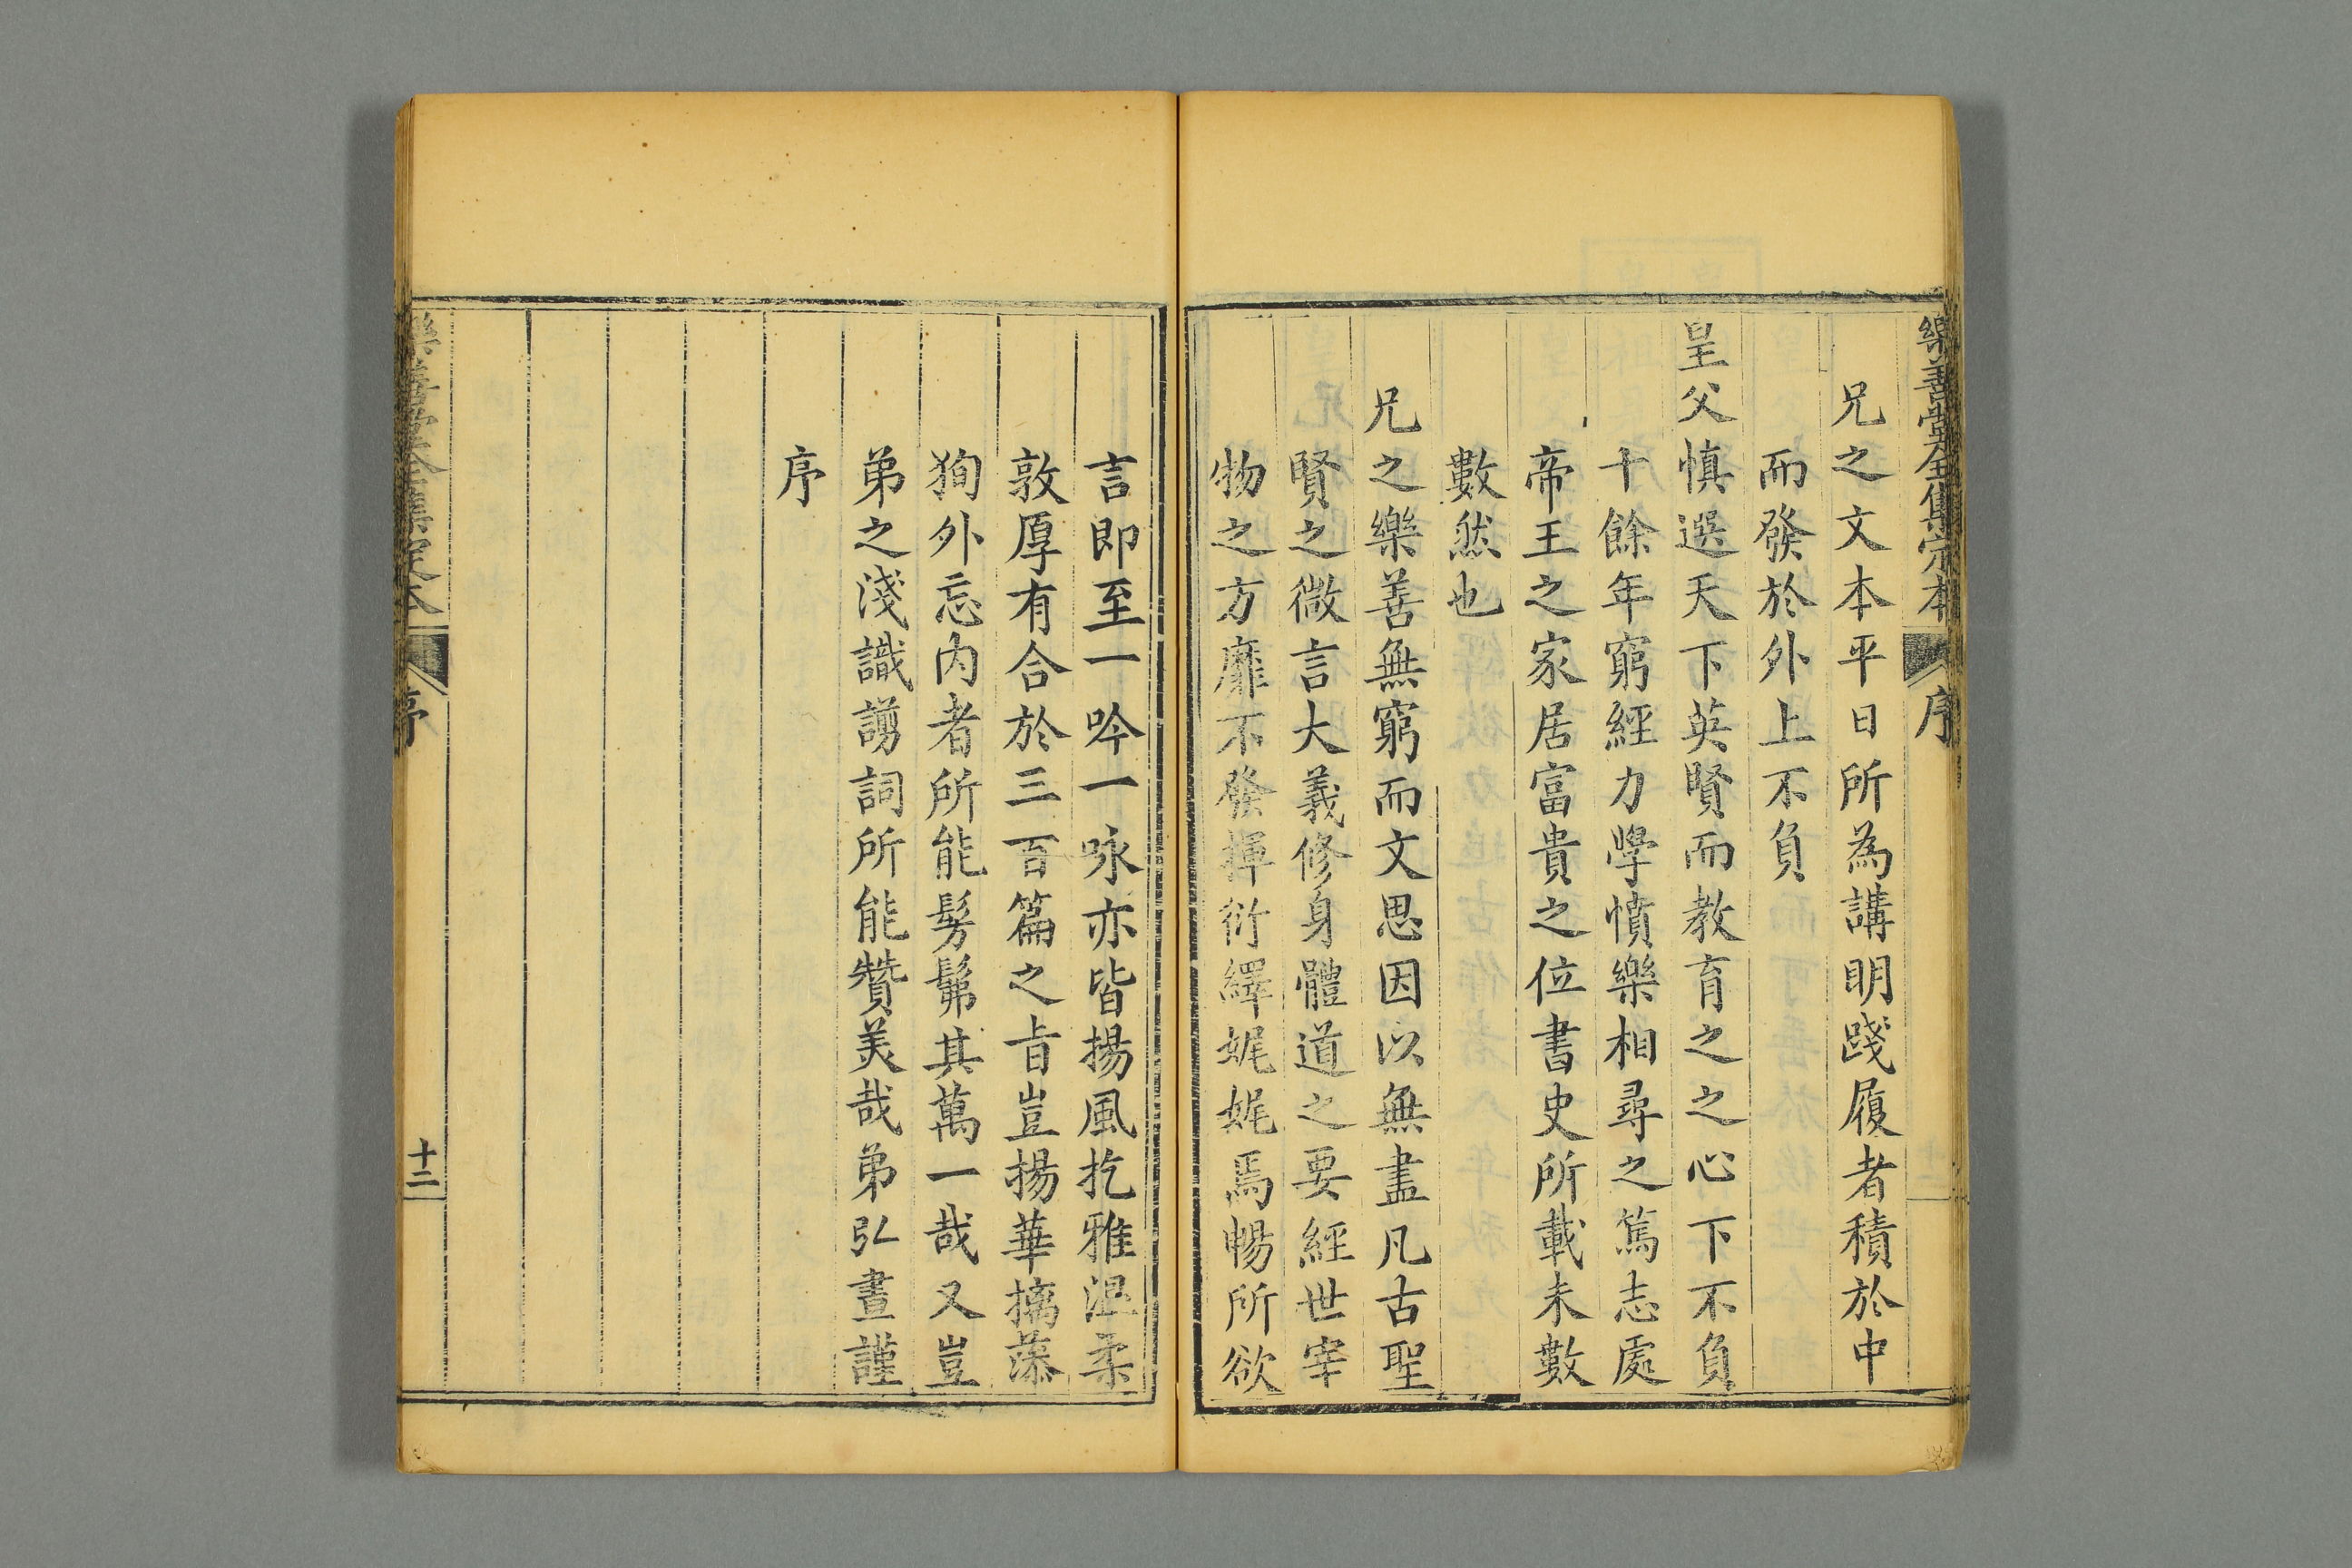 樂善堂全集定本
序
兄之文本平日所為講明踐履者積於中
而發於外上不負
皇父慎選天下英賢而教育之之心下不負
十餘年窮經力學憤樂相尋之篤志處
帝王之家居富貴之位書史所載未數
數然也
兄之樂善無窮而文思因以無盡凡古聖
賢之微言大義修身體道之要經世宰
物之方靡不發揮衍繹娓娓焉暢所欲
言即至一吟一咏亦皆揚風扢雅溫柔
敦厚有合於三百篇之旨豈揚華摛藻
狥外忘内者所能髣髴其萬一哉又豈
弟之淺識謭詞所能贊美哉弟弘晝謹
序
樂善堂全集定本
序
十二